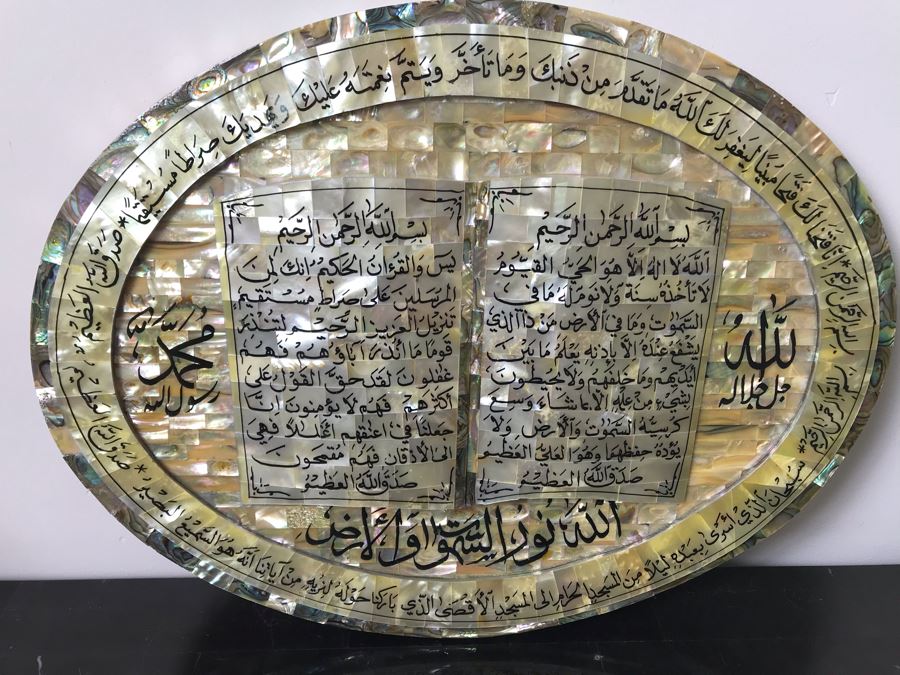 بسم الله الرحمن الرحيم * إنا فتحنا لك فتحا مبينا ليغفر لك الله ما تقدم من ذنبك وما تأخر ويتم نعمته عليك ويهديك صراطا مستقيما * صدق الله العظيم
بسم الله الرحمن الرحيم
الله لا اله الا هو الحي القيوم
لا تأخذه سنة ولا نوم له ما في
السموت وما في الأرض من ذا الذي
يشفع عنده الا باذنه يعلم ما بين
أيديهم وما خلفهم ولا يحيطون
بشيء من علمه الا بما شاء وسع
كرسيه السموت والأرض ولا
يؤده حفظهما وهو العلي العظيم
صدق الله العظيم
بسم الله الرحمن الرحيم
يس والقرءان الحكيم انك لمن
المرسلين على صراط مستقيم
تنزيل العزيز الرحيم لتنذر
قوما ما أنذر اباؤهم فهم
غفلون لقد حق القول على
أكثرهم فهم لا يؤمنون انا
جعلنا في اعنقهم اغللا فهي
الى الأذقان فهم مقمحون
صدق الله العظيم
الله
جل جلاله
محمد
رسول الله
الله نور السموات والأرض
بسم الله الرحمن الرحيم * سبحان الذي أسرى بعبده ليلا من المسجد الحرام الى المسجد الأقصى الذي باركنا حوله لنريه من آياتنا انه هو السميع البصير * صدق الله العظيم